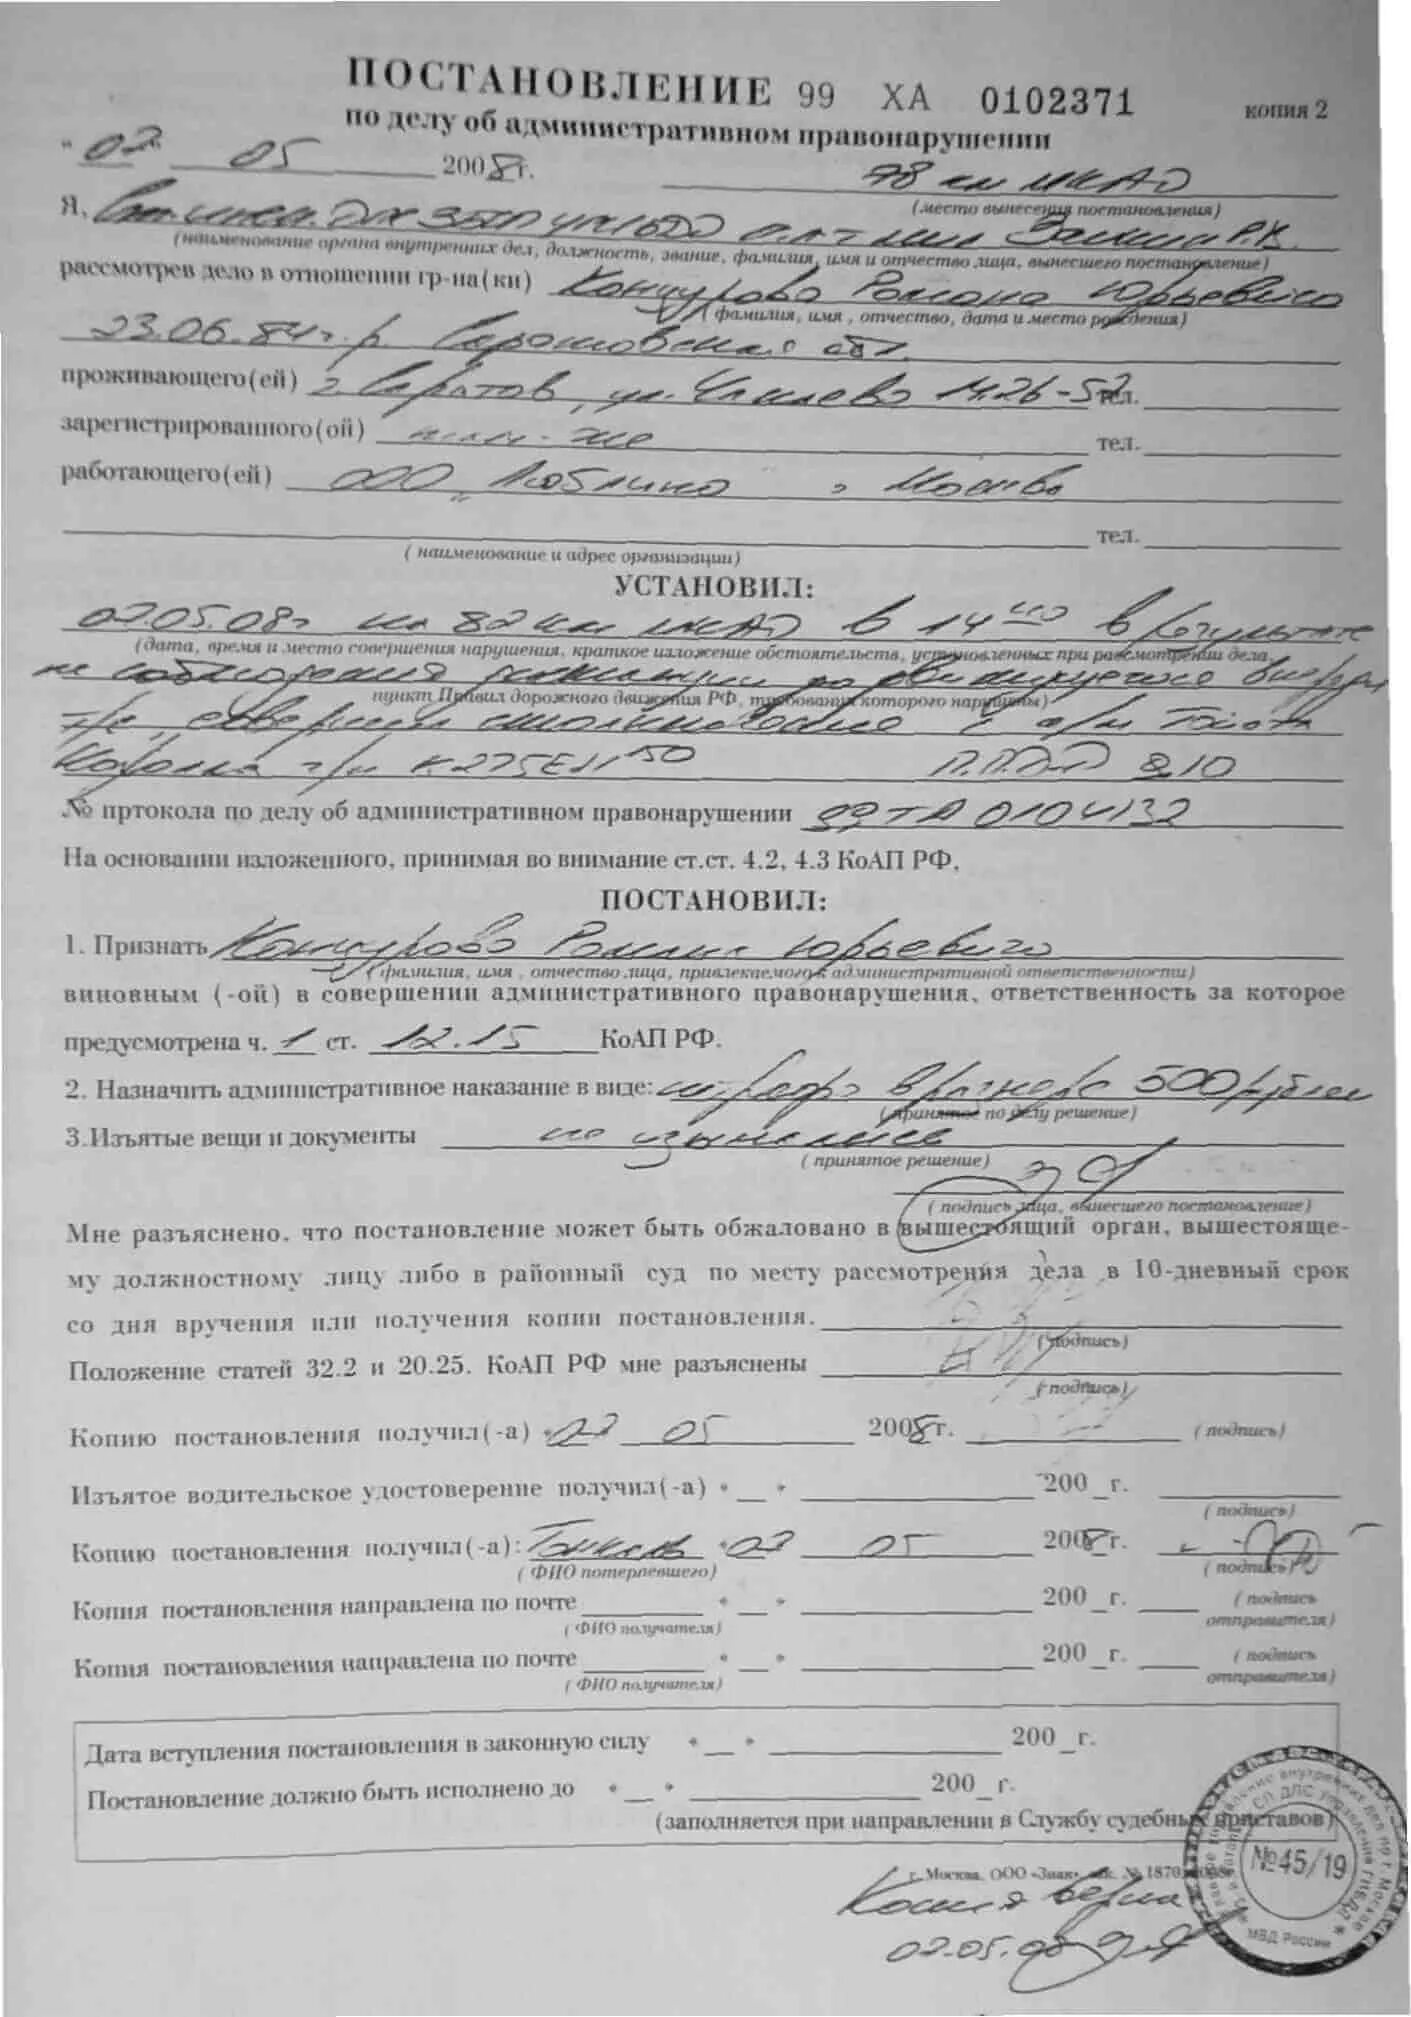 ПОСТАНОВЛЕНИЕ 99 ХА 0102371 копия 2
по делу об административном правонарушении
" 02 " 05 2008 г. 78 км МКАД
(место вынесения постановления)
Я,
(наименование органа внутренних дел, должность, звание, фамилия, имя и отчество лица, вынесшего постановление)
рассмотрев дело в отношении гр-на(ки) Романа Юрьевича
(фамилия, имя, отчество, дата и место рождения)
23.06.84г.р. Саратовская обл.
проживающего(ей) г. Саратов, ул. 14.26-52 тел.
зарегистрированного(ой) там-же тел.
работающего(ей) ООО "Люблино г Москва
тел.
(наименование и адрес организации)
УСТАНОВИЛ:
02.05.08г на 82 км МКАД в 14 в результате
(дата, время и место совершения нарушения, краткое изложение обстоятельств, установленных при рассмотрении дела,
не соблюдения дистанции до движущегося впереди
пункт Правил дорожного движения РФ, требования которого нарушены)
т/с, совершил столкновение с а/м Тойота
Королла г/н 50 П.ПДД 9.10
№ пртокола по делу об административном правонарушении 99 ТА 0104132
На основании изложенного, принимая во внимание ст.ст. 4.2, 4.3 КоАП РФ,
ПОСТАНОВИЛ:
1. Признать Романа Юрьевича
(фамилия, имя, отчество лица, привлекаемого к административной ответственности)
виновным (-ой) в совершении административного правонарушения, ответственность за которое
предусмотрена ч. 1 ст. 12.15 КоАП РФ.
2. Назначить административное наказание в виде: штрафа в размере 500 рублей
(принятое по делу решение)
3.Изъятые вещи и документы не изымались
(принятое решение)
(подпись лица, вынесшего постановление)
Мне разъяснено, что постановление может быть обжаловано в вышестоящий орган, вышестояще-
му должностному лицу либо в районный суд по месту рассмотрения дела в 10-дневный срок
со дня вручения или получения копии постановления.
(подпись)
Положение статей 32.2 и 20.25. КоАП РФ мне разъяснены
(подпись)
Копию постановления получил(-а) " 02 05 2008г. (подпись)
Изъятое водительское удостоверение получил(-а) " " 200 г.
(подпись)
Копию постановления получил(-а): " 02 05 2008г.
(ФИО потерпевшего) (подпись)
Копия постановления направлена по почте " " 200 г. (подпись
(ФИО получателя) отправителя)
Копия постановления направлена по почте " " 200 г. (подпись
(ФИО получателя) отправителя)
Дата вступления постановления в законную силу " " 200 г.
Постановление должно быть исполнено до " " 200 г.
(заполняется при направлении в Службу судебных приставов)
г. Москва, ООО «Знак»,
Копия верна
02.05.08
№45/19
МВД России